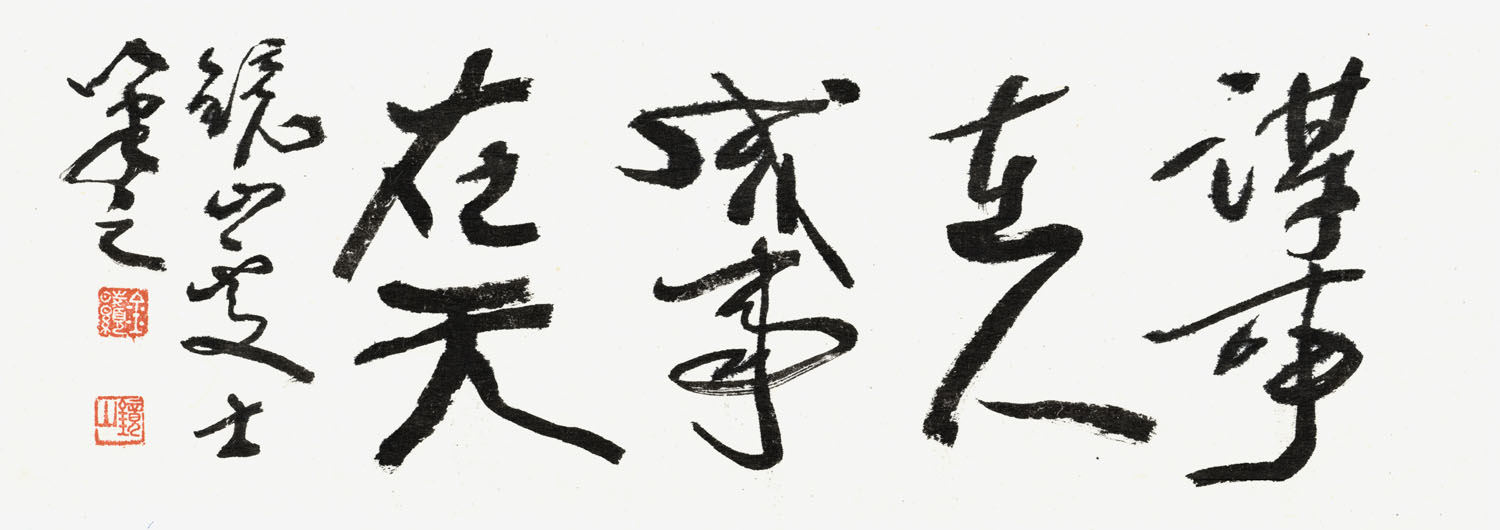 謀事
在人
成事
在天
鏡山處士
筆之
鏡山